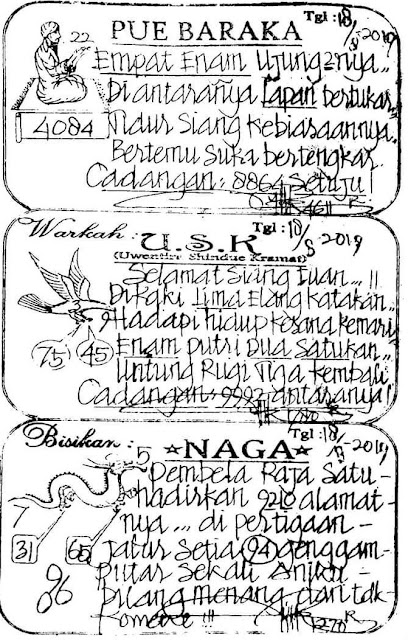 PUE BARAKA
Tgl : 18/8-2019
22
Empat Enam Ujung2nya..
Diantaranya Lapan bertukar
4084
Tidur Siang Kebiasaannya.
Bertemu Suka bertengkar.
Cadangan : 8864 Setuju!
Warkah :
U.S.K
Tgl : 18/8-2019
(Uwentira Shindue Kramat)
Selamat Siang Tuan... !!
Di Kaki Lima Elang katakan..
Hadapi hidup Kosong kemari
75 45
Enam putri Dua Satukan..
Untung Rugi Tiga Kembali
Cadangan : 9992 antaranya!
Bisikan :
5
NAGA
Tgl : 18/8-2019
Pembela Raja Satu-
hadirkan 9210 alamat-
nya ... di pertigaan -
7
31 65
Jalur Setia 94 genggam-
Putar Sekali Angka -
96
bilang menang dan tak-
Komene !!!